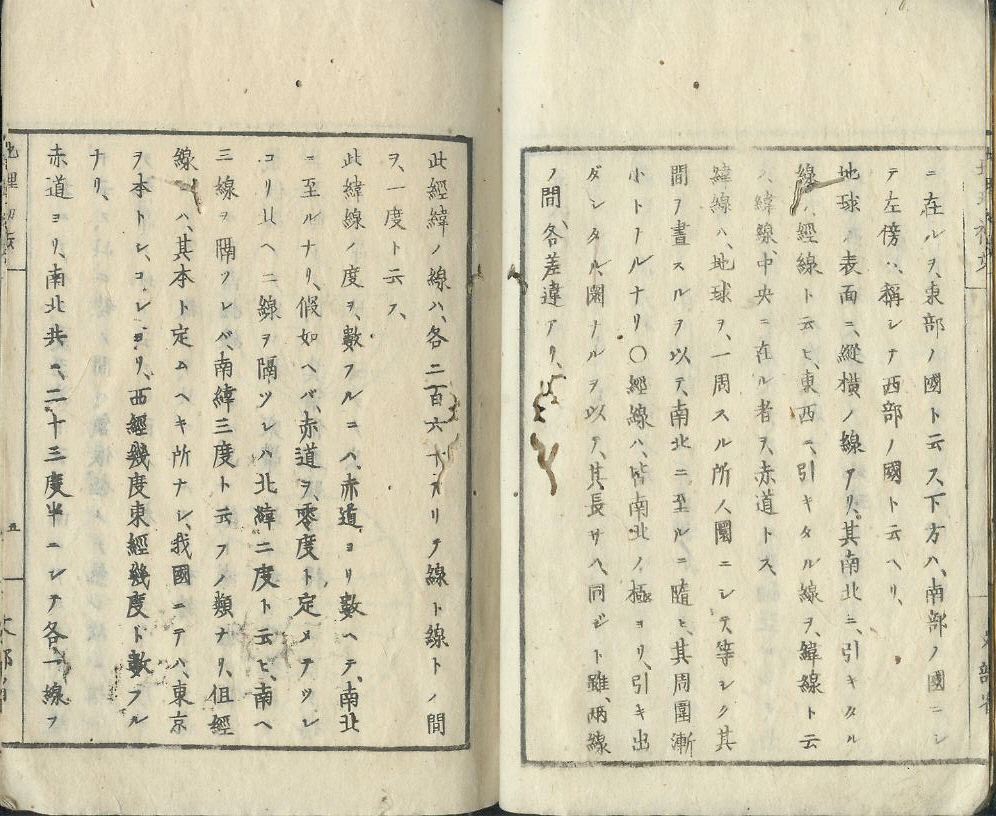 ニ在ルヲ、東部ノ國ト云ス、下方ハ、南部ノ國ニシ
テ左傍ハ、稱シテ西部ノ國ト云ヘリ、
地球ノ表面ニ、縱横ノ線アリ、其南北ニ、引キタル
線ハ、經線ト云ヒ、東西ニ、引キタル線ヲ、緯線ト云
緯線中央ニ在ル者ヲ、赤道トス、
緯線ハ、地球ヲ、一周スル所ノ圏ニシテ、等シク其
間ヲ畫スルヲ以テ、南北ニ至ルニ隨ヒ、其周圍漸
小トナルナリ〇經線ハ、皆南北ノ極ヨリ、引キ出
ダシタル、圏ナルヲ以テ、其長サハ、同ジト雖、兩線
ノ間、各差違アリ、
此經緯ノ線ハ、各三百六十アリテ線ト線トノ間
ヲ、一度ト云ス、
此緯線ノ度ヲ、數フルニハ、赤道ヨリ數ヘテ、南北
ニ至ルナリ、假如ヘバ、赤道ヲ、零度ト定メテソレ
ヨリ北ヘ二線ヲ隔ツレハ北緯二度ト云ヒ、南ヘ
三線ヲ隔ツレバ、南緯三度ト云フノ類ナリ、但經
線ハ、其本ト定ムヘキ所ナシ、我國ニテハ、東京
ヲ、本トシ、コレヨリ、西經幾度東經幾度ト數フル
ナリ、
赤道ヨリ、南北共ニ、二十三度半ニシテ各一線ヲ
地理初
五
文部省